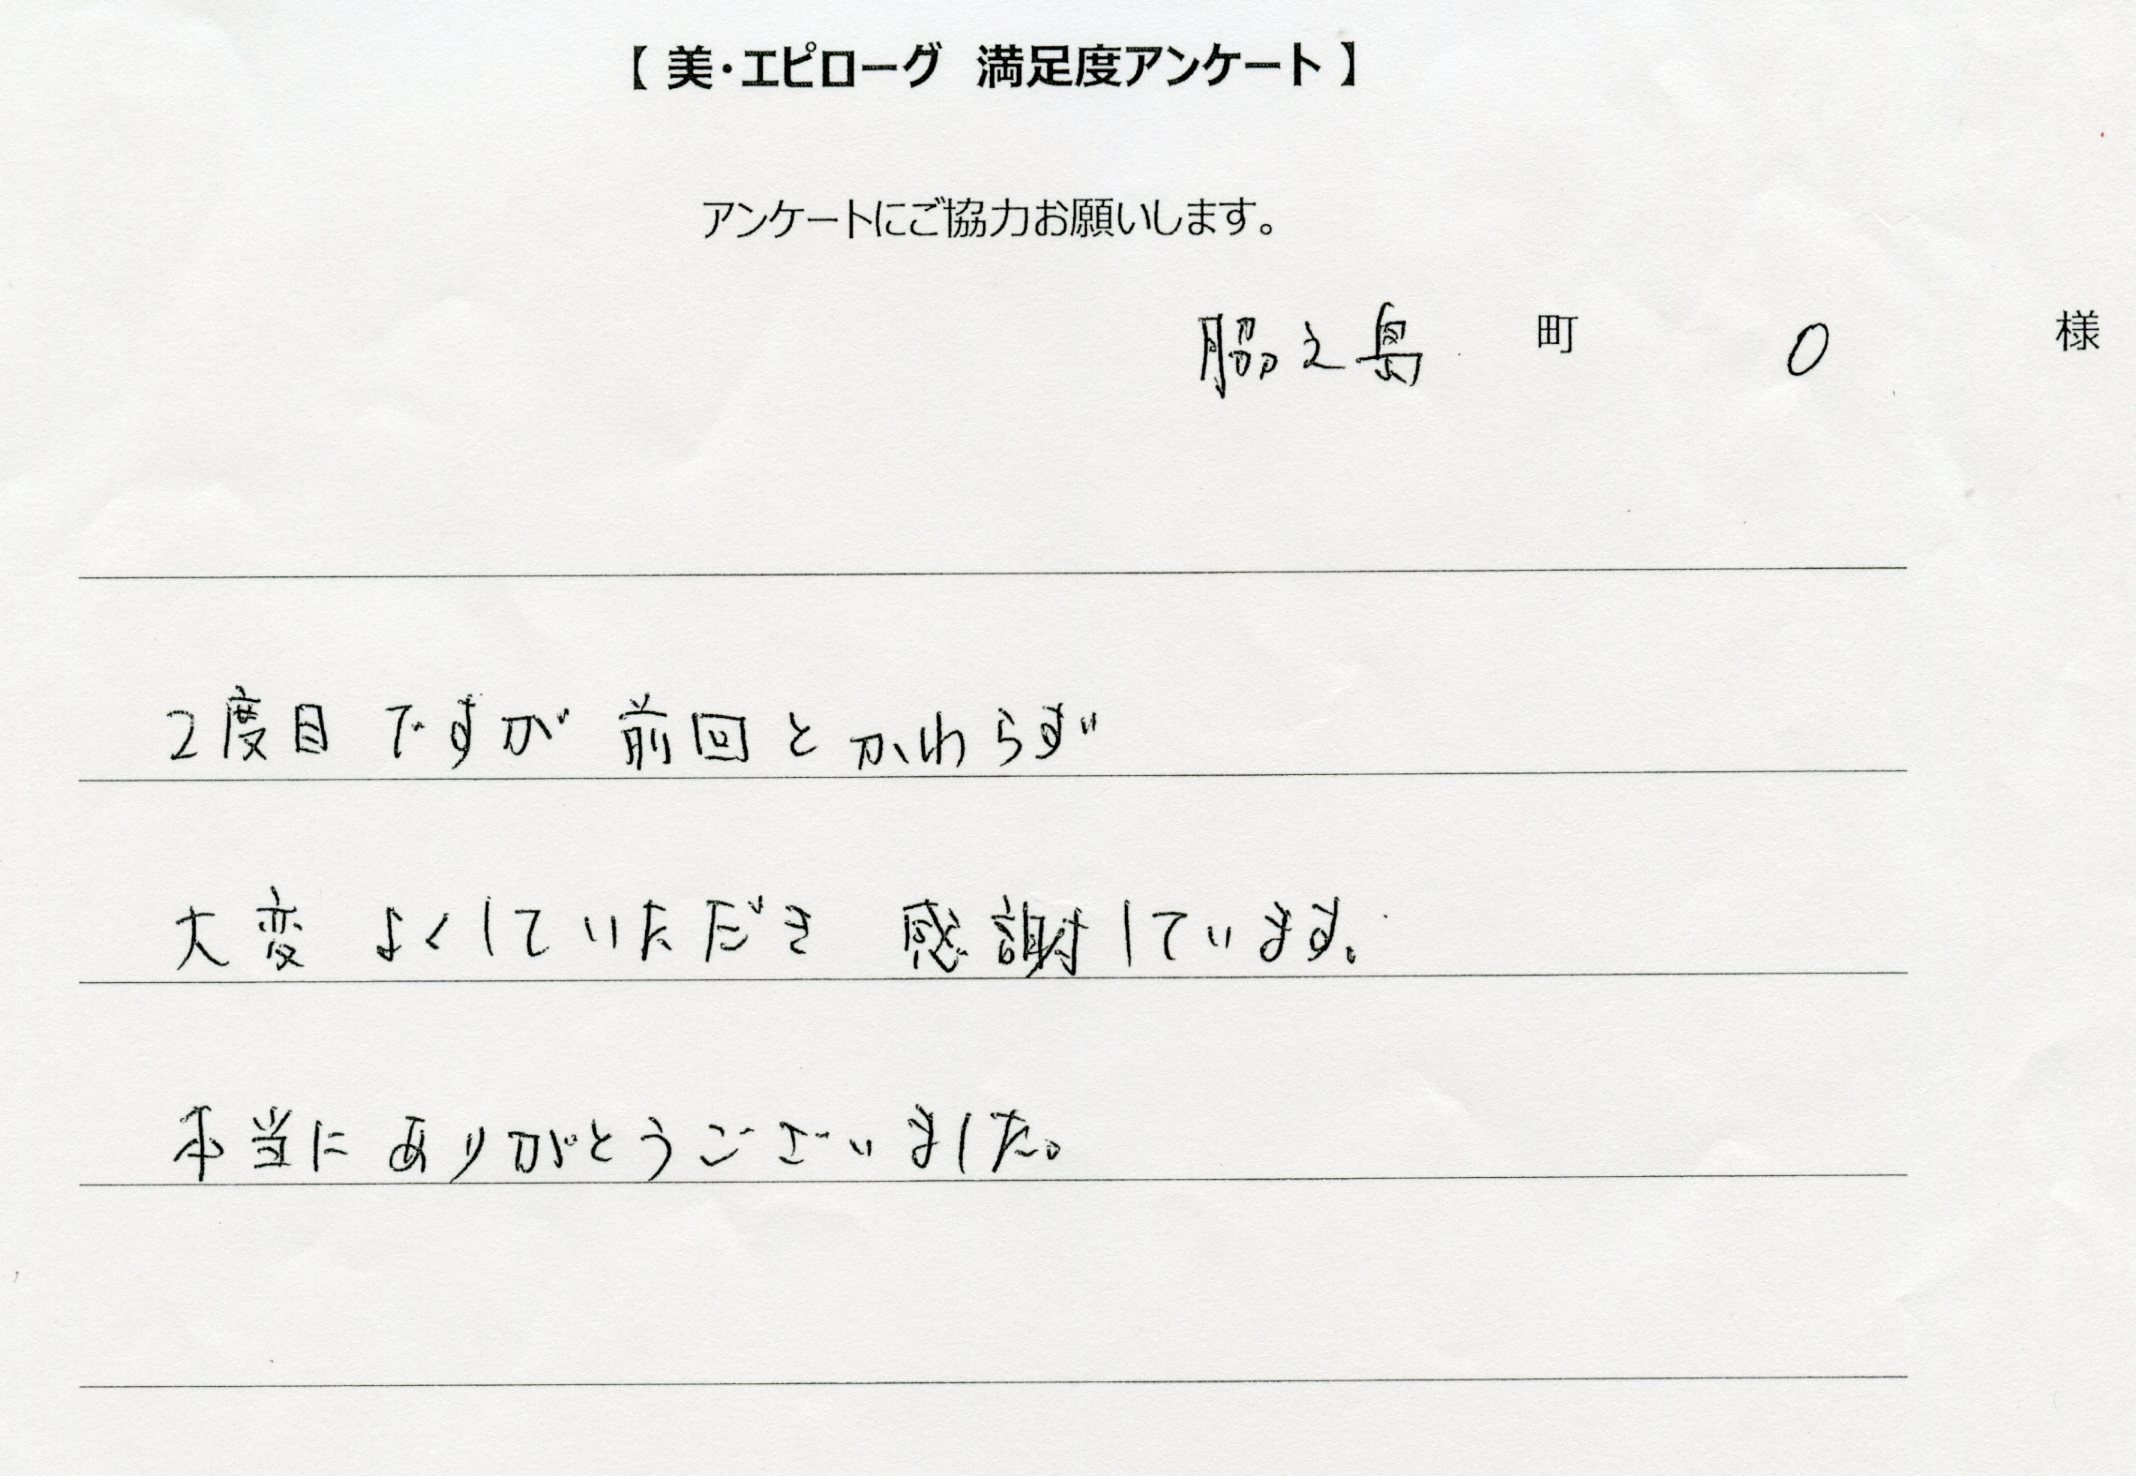 【 美・エピローグ 満足度アンケート 】
アンケートにご協力お願いします。
脇之島 町 O 様
2度目ですが 前回とかわらず
大変 よくしていただき 感謝しています。
本当に ありがとうございました。